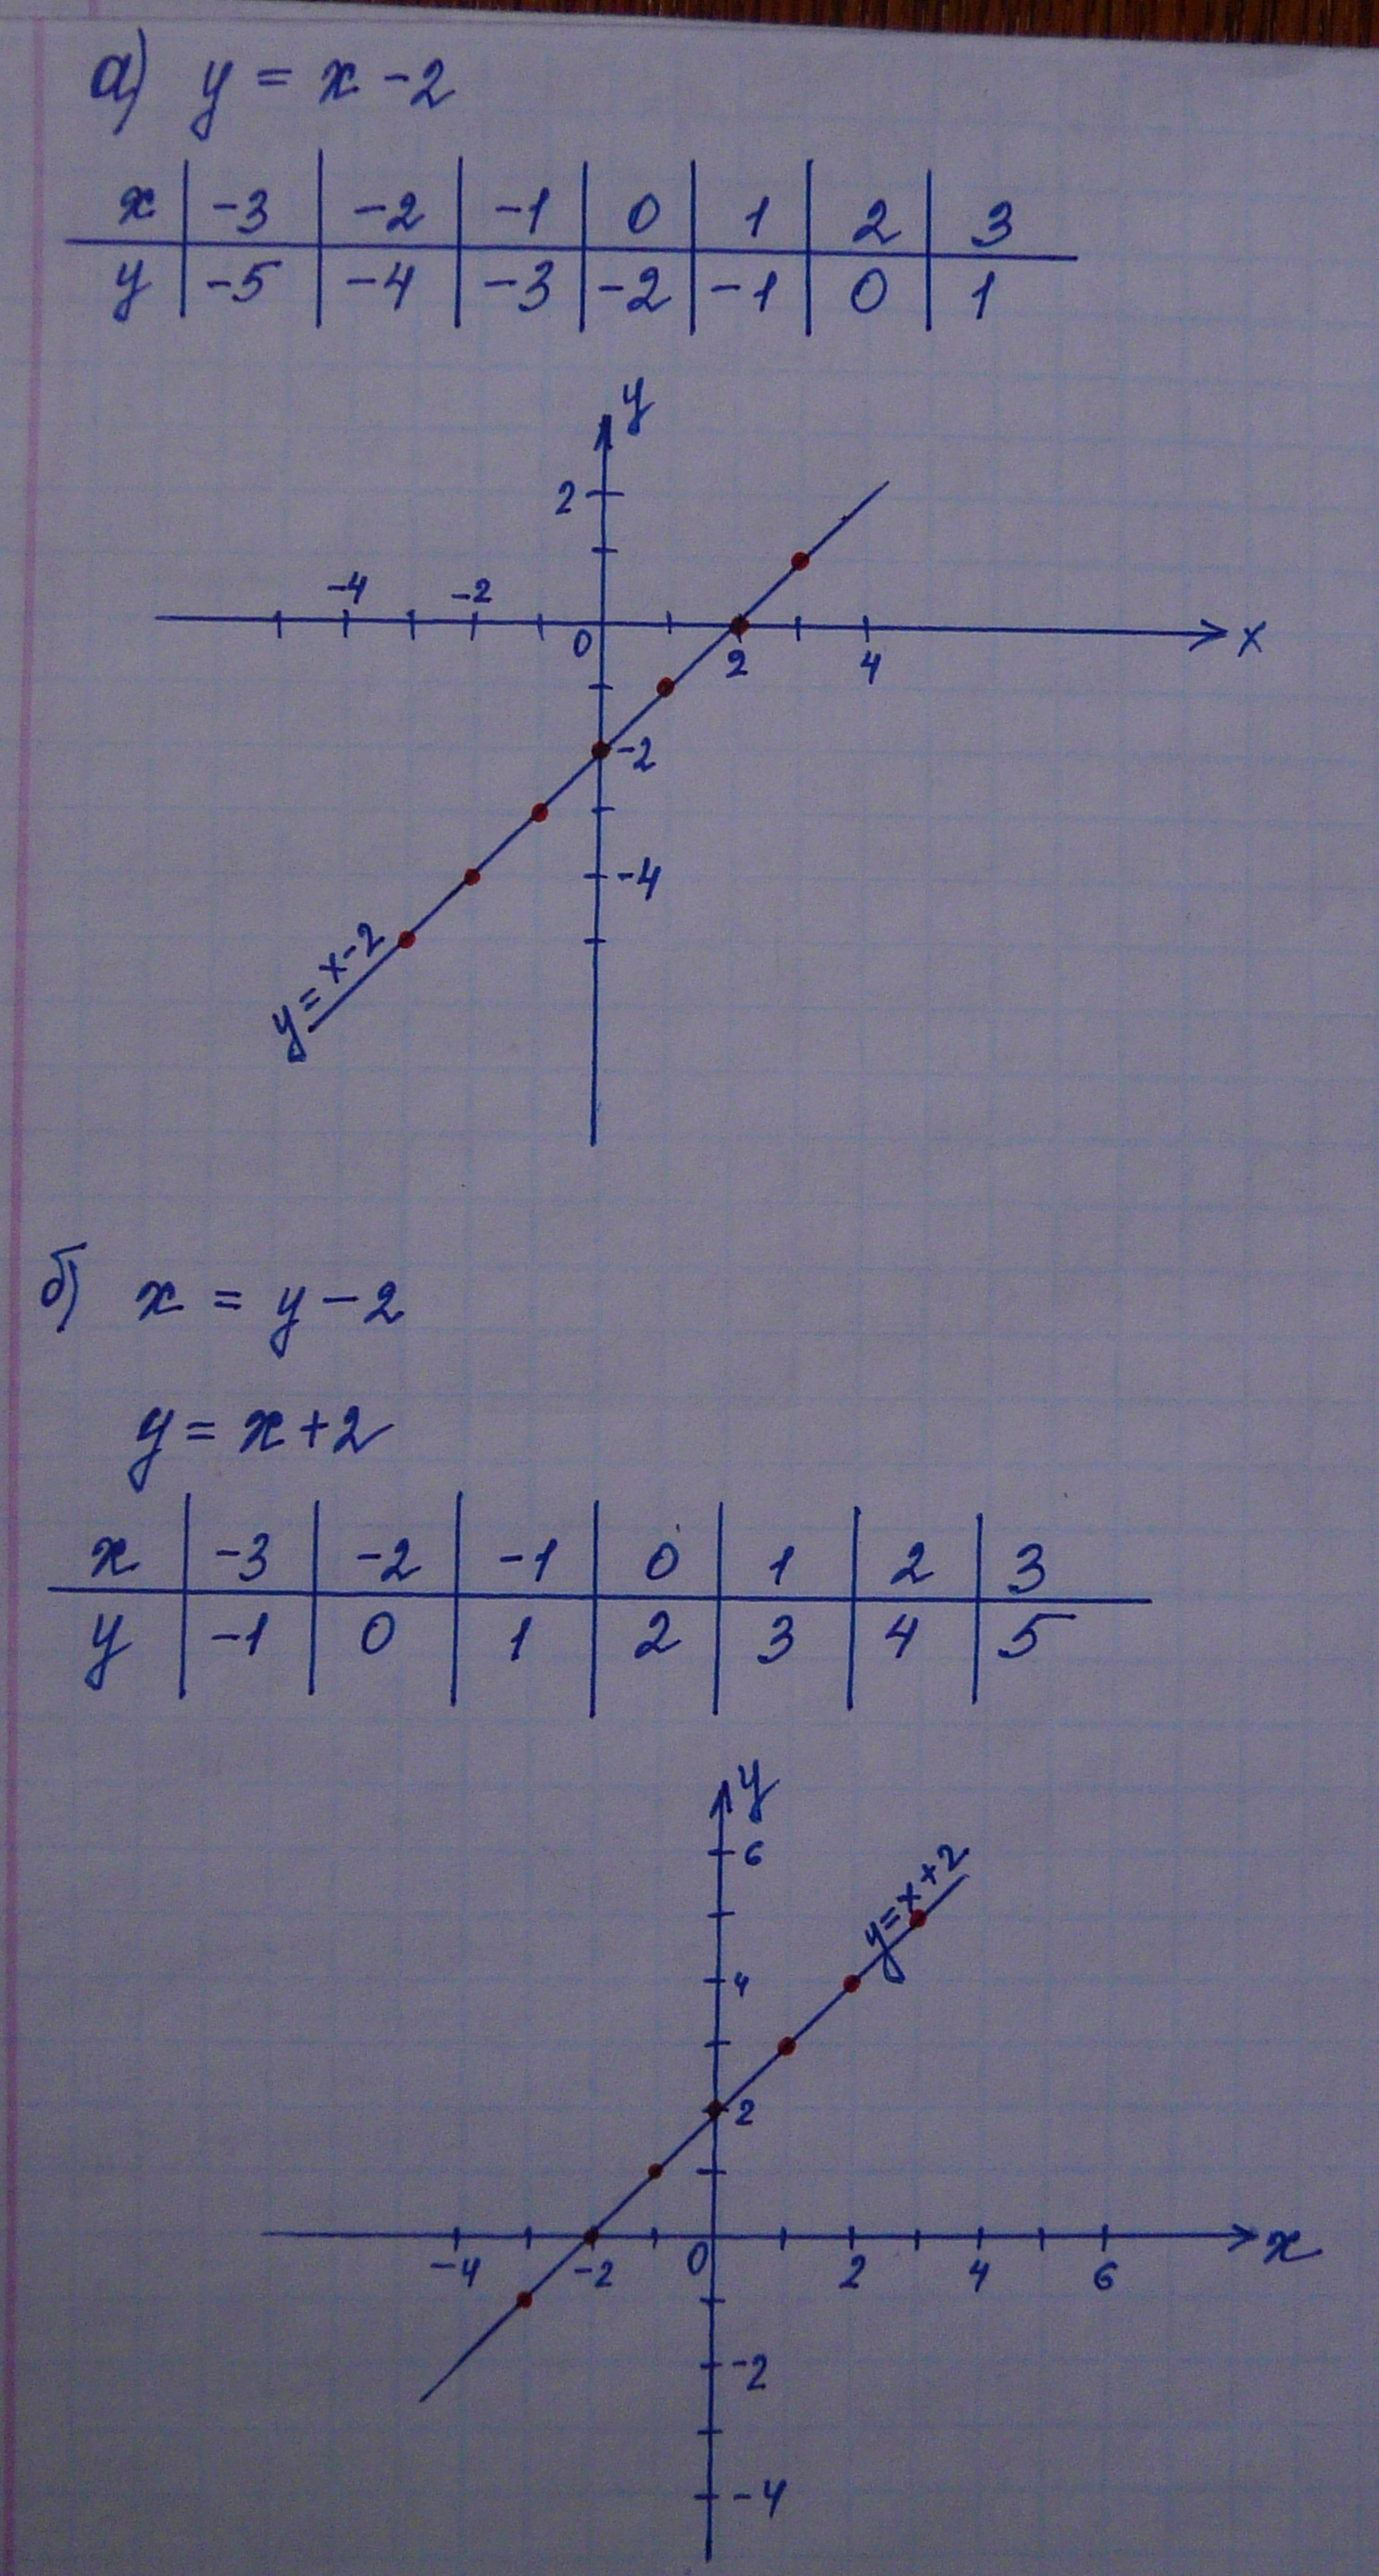 а) y = x - 2
x | -3 | -2 | -1 | 0 | 1 | 2 | 3
y | -5 | -4 | -3 | -2 | -1 | 0 | 1
y
2
-4 -2
0 2 4 x
-2
-4
y = x - 2
б) x = y - 2
y = x + 2
x | -3 | -2 | -1 | 0 | 1 | 2 | 3
y | -1 | 0 | 1 | 2 | 3 | 4 | 5
y
6
y = x + 2
4
2
-4 -2 0 2 4 6 x
-2
-4